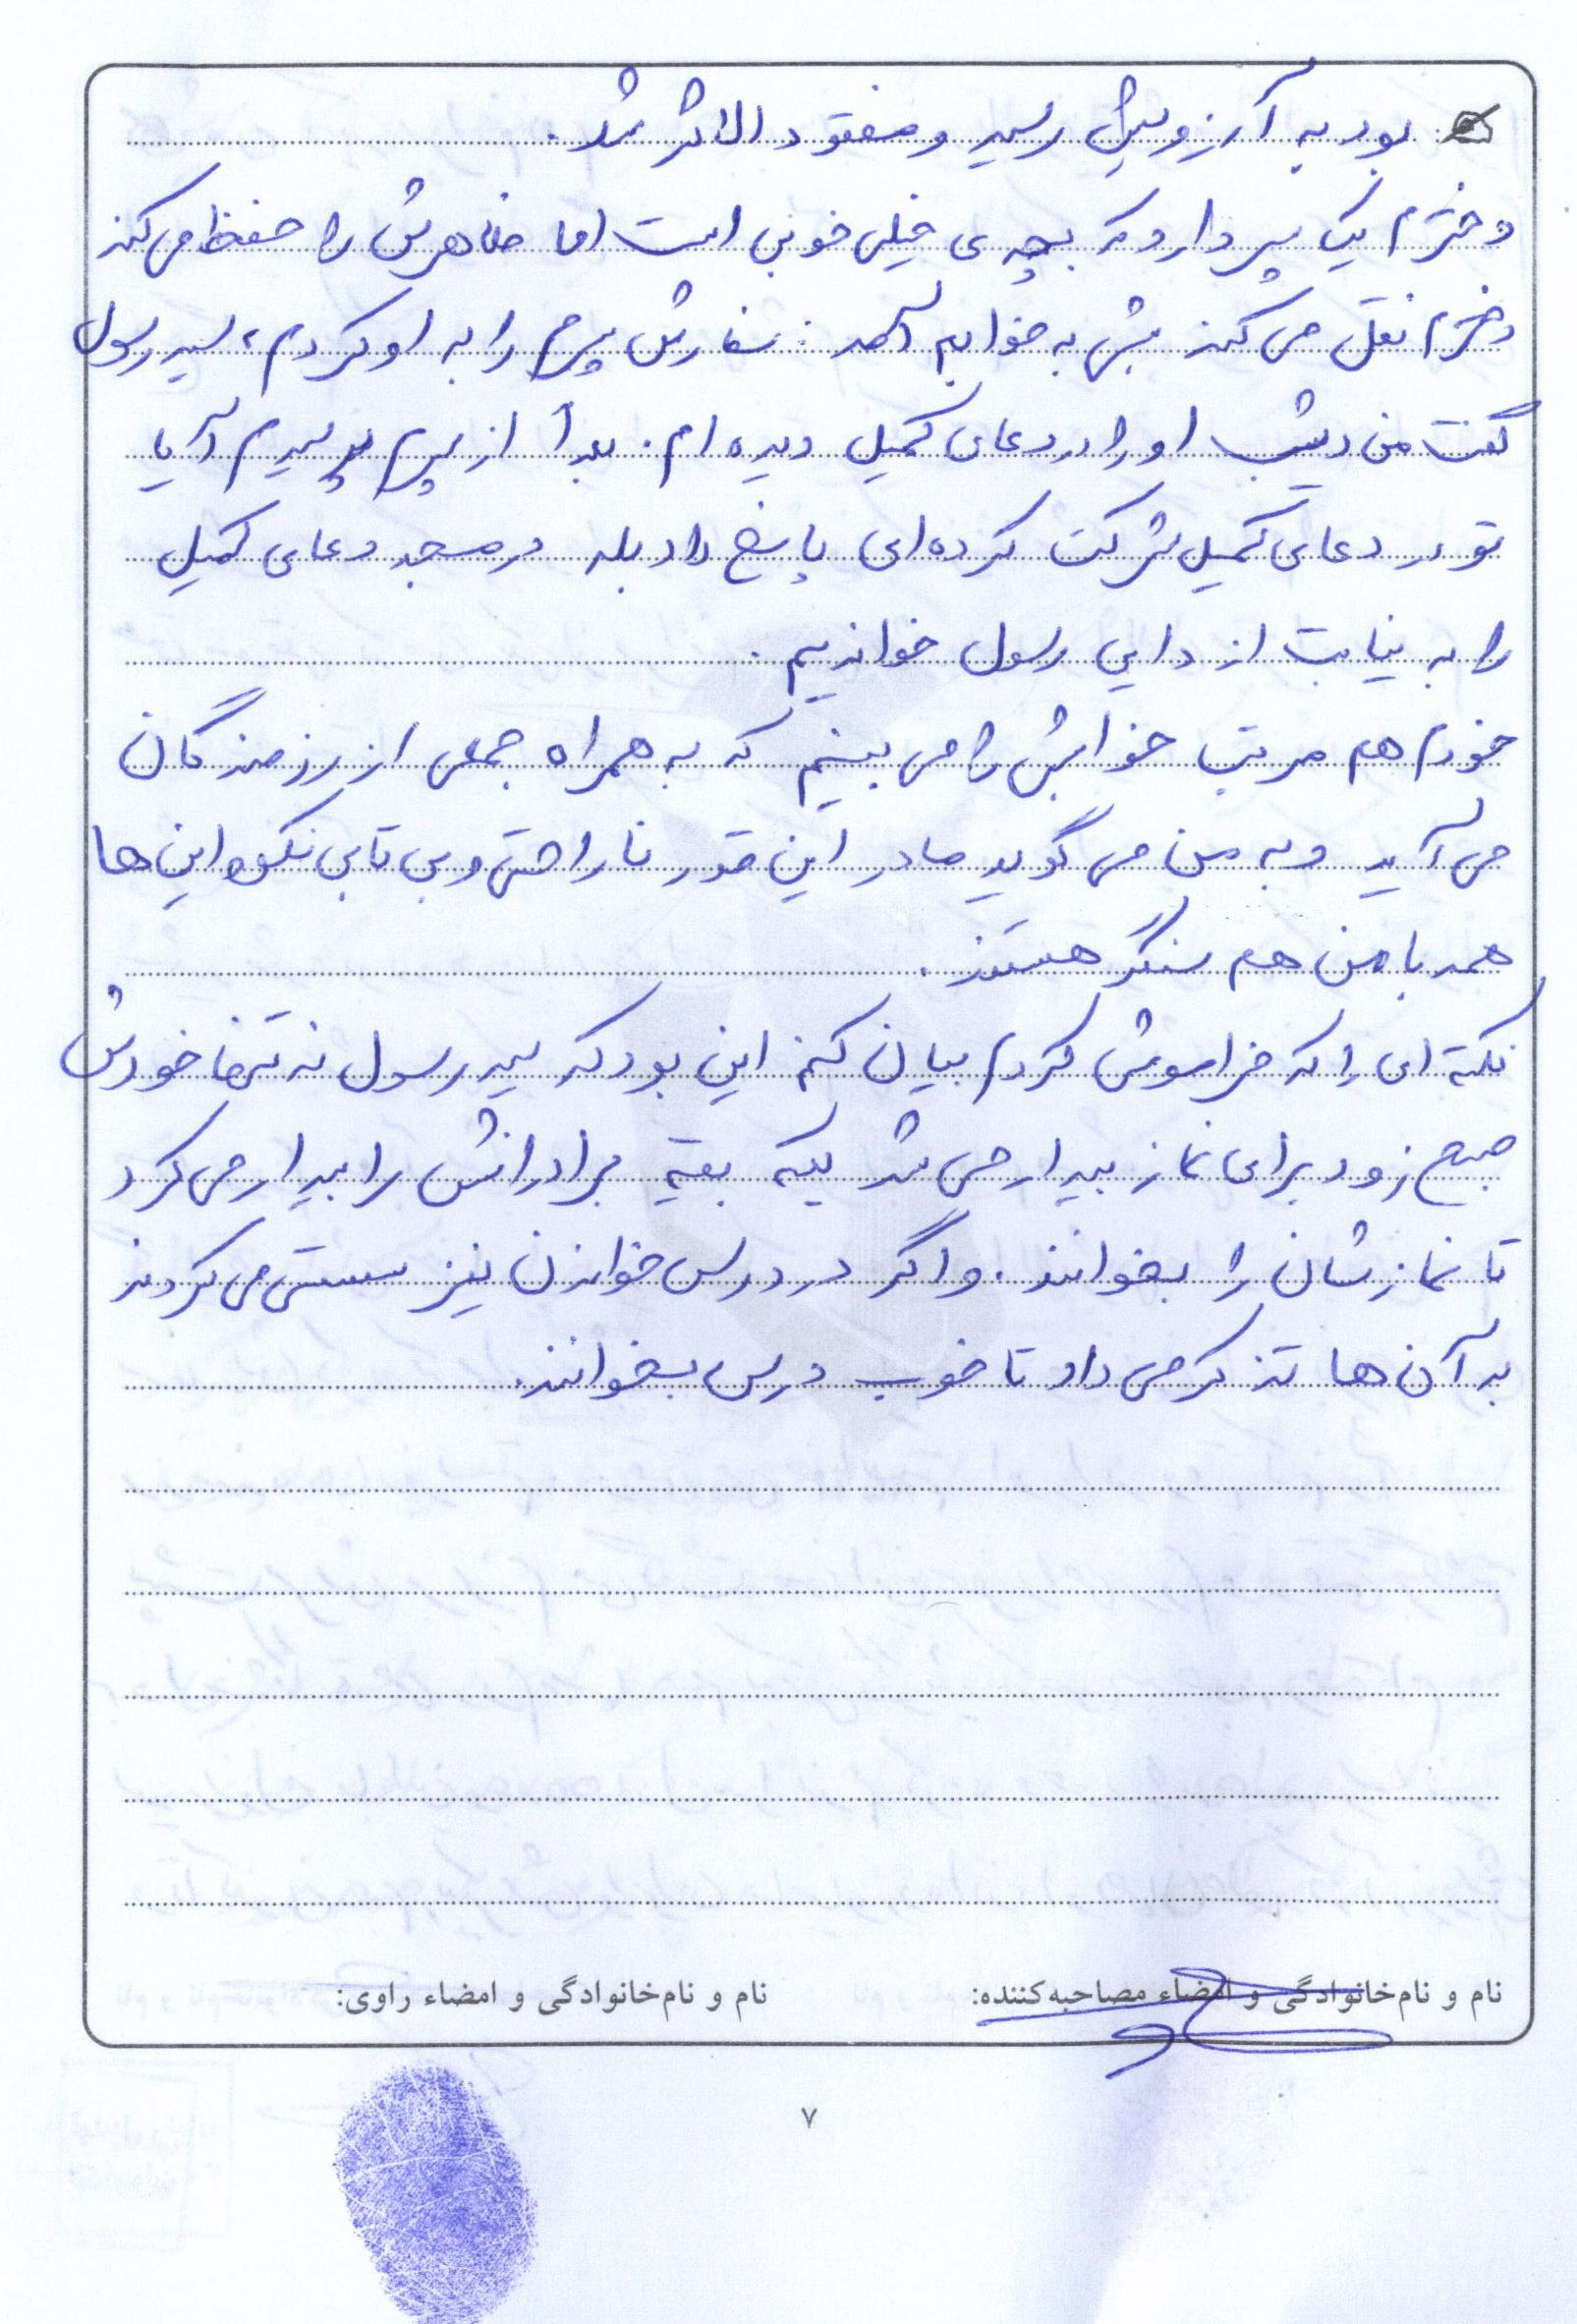 بود به آرزویش رسید و مفقود الاثر شد.
دخترم یک پسر دارد که بچه ی خیلی خوبی است اما ظاهرش را حفظ می کند
دخترم نقل می کند شبی به خوابم آمد: سفارش پسرم را به او کردم، سید رسول
گفت من دیشب او را در دعای کمیل دیده ام. بعداً از پسرم پرسیدم آیا
تو در دعای کمیل شرکت کرده ای پاسخ داد بله در مسجد دعای کمیل
را به نیابت از دایی رسول خواندیم.
خودم هم مرتب خوابش را می بینم که به همراه جمعی از رزمندگان
می آید و به من می گوید مادر این قدر ناراحتی و بی تابی نکن این ها
همه با من هم سنگر هستند.
نکته ای را که فراموش کردم بیان کنم این بود که سید رسول نه تنها خودش
صبح زود برای نماز بیدار می شد بلکه بقیه برادرانش را بیدار می کرد
تا نمازشان را بخوانند. و اگر در درس خواندن نیز سستی می کردند
به آن ها تذکر می داد تا خوب درس بخوانند.
نام و نام‌خانوادگی و امضاء مصاحبه‌کننده: نام و نام‌خانوادگی و امضاء راوی:
۷